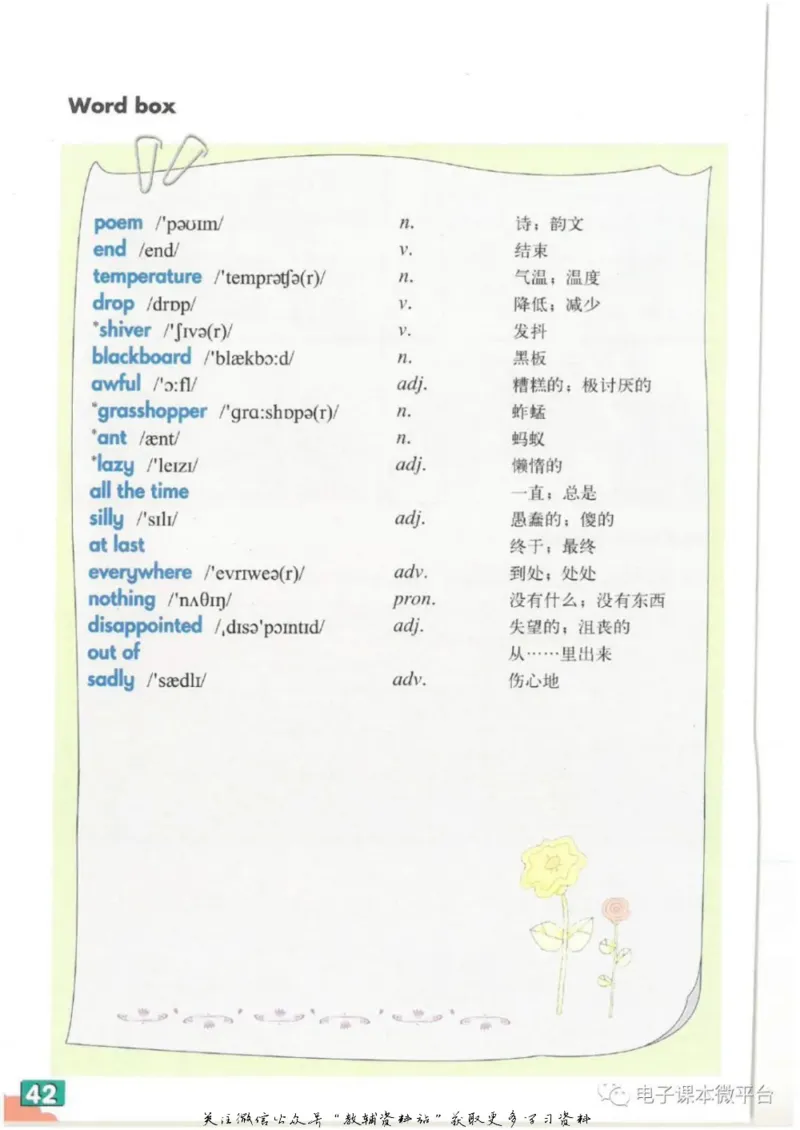 Word box
poem /'pəʊɪm/ n. 诗；韵文
end /end/ v. 结束
temperature /'temprətʃə(r)/ n. 气温；温度
drop /drɒp/ v. 降低；减少
*shiver /'ʃɪvə(r)/ v. 发抖
blackboard /'blækbɔ:d/ n. 黑板
awful /'ɔ:fl/ adj. 糟糕的；极讨厌的
*grasshopper /'grɑ:shɒpə(r)/ n. 蚱蜢
*ant /ænt/ n. 蚂蚁
*lazy /'leɪzɪ/ adj. 懒惰的
all the time 一直；总是
silly /'sɪlɪ/ adj. 愚蠢的；傻的
at last 终于；最终
everywhere /'evrɪweə(r)/ adv. 到处；处处
nothing /'nʌθɪŋ/ pron. 没有什么；没有东西
disappointed /ˌdɪsə'pɔɪntɪd/ adj. 失望的；沮丧的
out of 从……里出来
sadly /'sædlɪ/ adv. 伤心地
42
电子课本微平台
关注微信公众号"教辅资料站"获取更多学习资料